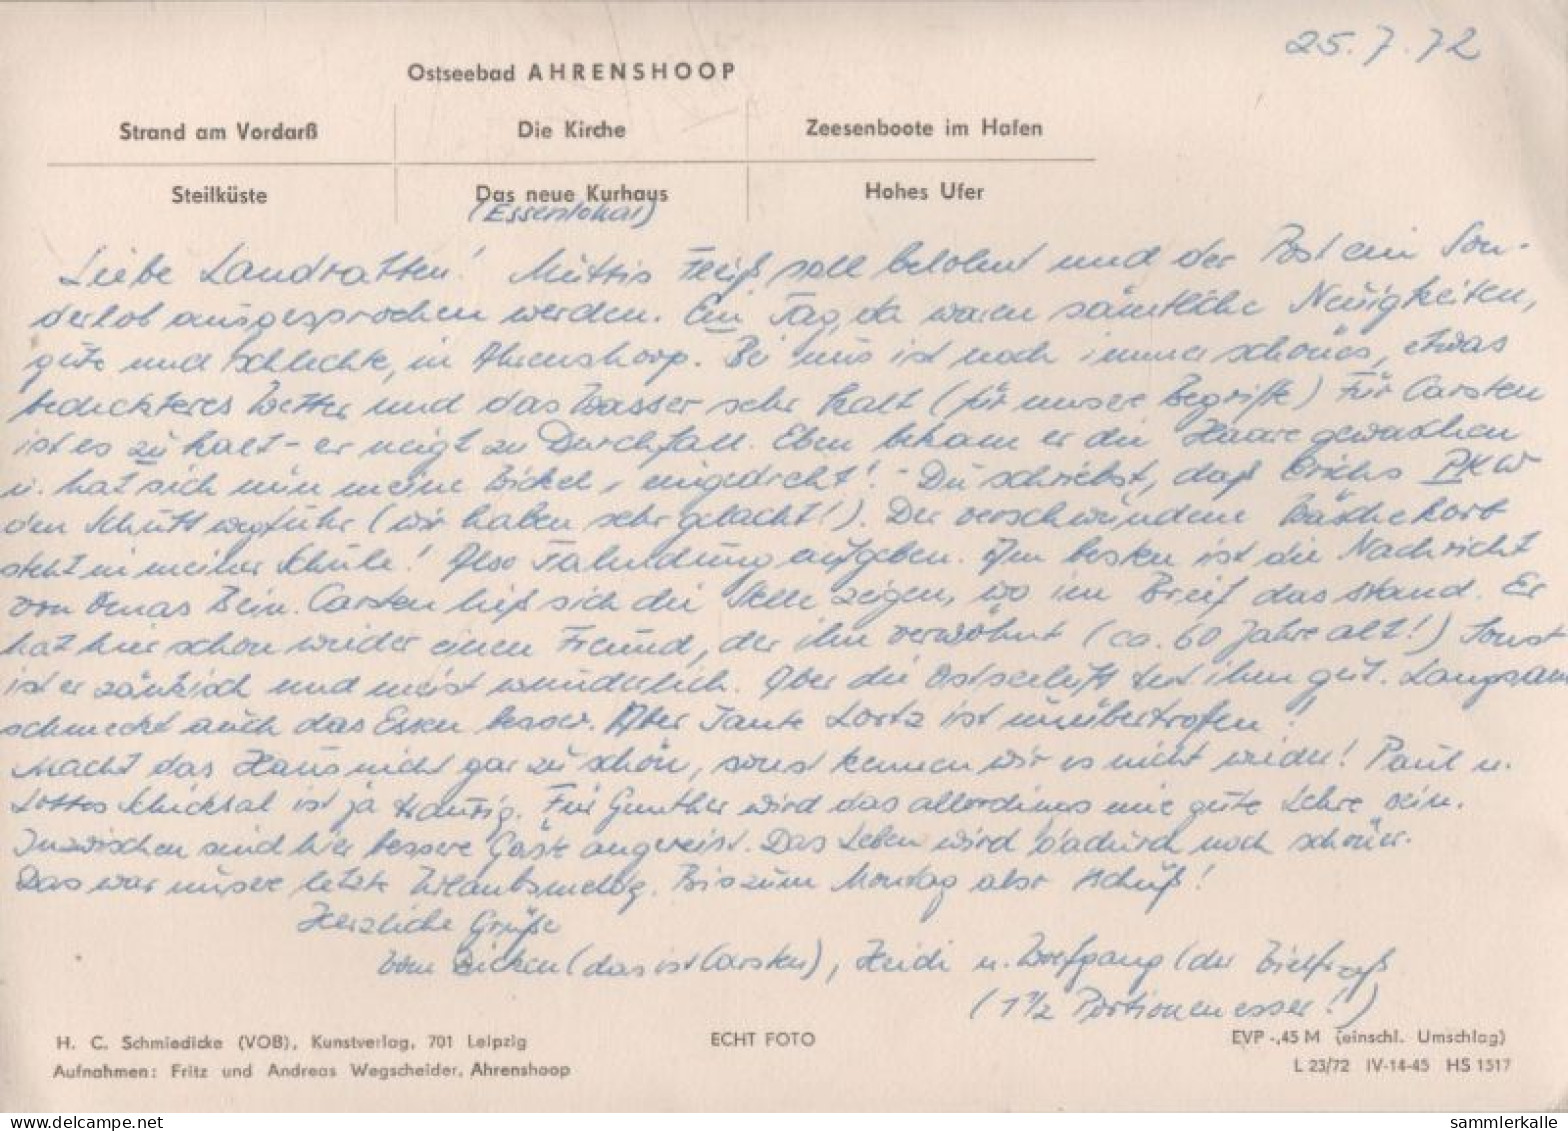 25.7.72
Ostseebad AHRENSHOOP
Strand am Vordarß Die Kirche Zeesenboote im Hafen
Steilküste Das neue Kurhaus Hohes Ufer
(Essenlokal)
Liebe Landratten! Muttis Fleiß soll belohnt und der Post ein Son-
derlob ausgesprochen werden. Ein Tag, da waren sämtliche Neuigkeiten,
gute und schlechte, in Ahrenshoop. Bei uns ist noch immer schönes, etwas
bedeckteres Wetter und das Wasser sehr kalt (für unsere Begriffe) Für Carsten
ist es zu kalt - er neigt zu Durchfall. Eben bekam er die Haare gewaschen
u. hat sich nun meine Wickel eingedreht! - Du schriebst, daß Erichs PKW
den Schutt wegfuhr (wir haben sehr gelacht!). Der verschwundene Wäschekorb
steht in meiner Schule! Also Fahndung aufgeben. Am besten ist die Nachricht
von Omas Bein. Carsten ließ sich die Stelle zeigen, wo im Brief das stand. Er
hat hier schon wieder einen Freund, der ihn verwöhnt (ca. 60 Jahre alt!) Sonst
ist er zänkisch und meist wunderlich. Aber die Ostseeluft tut ihm gut. Langsam
schmeckt auch das Essen besser. Aber Tante Lortz ist unübertroffen!
Macht das Haus nicht gar zu schön, sonst kennen wir es nicht wieder! Paul u.
Lottes Schicksal ist ja traurig. Für Gunther wird das allerdings eine gute Lehre sein.
Inzwischen sind hier bessere Gäste angereist. Das Leben wird dadurch noch schöner.
Das war unsere letzte Urlaubsmeldg. Bis zum Montag also tschüß!
Herzliche Grüße
vom Dicken (das ist Carsten), Heidi u. Wolfgang (der Vielfraß
(1 1/2 Portionenesser!)
H. C. Schmiedicke (VOB), Kunstverlag, 701 Leipzig ECHT FOTO EVP -,45 M (einschl. Umschlag)
Aufnahmen: Fritz und Andreas Wegscheider, Ahrenshoop L 23/72 IV-14-45 HS 1517
www.delcampe.net sammlerkalle